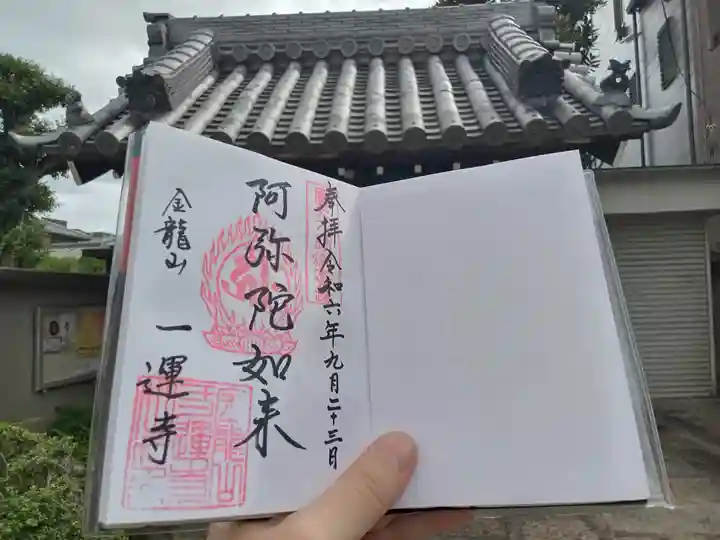 奉拝 令和六年九月二十三日
阿弥陀如来
金龍山
一運寺